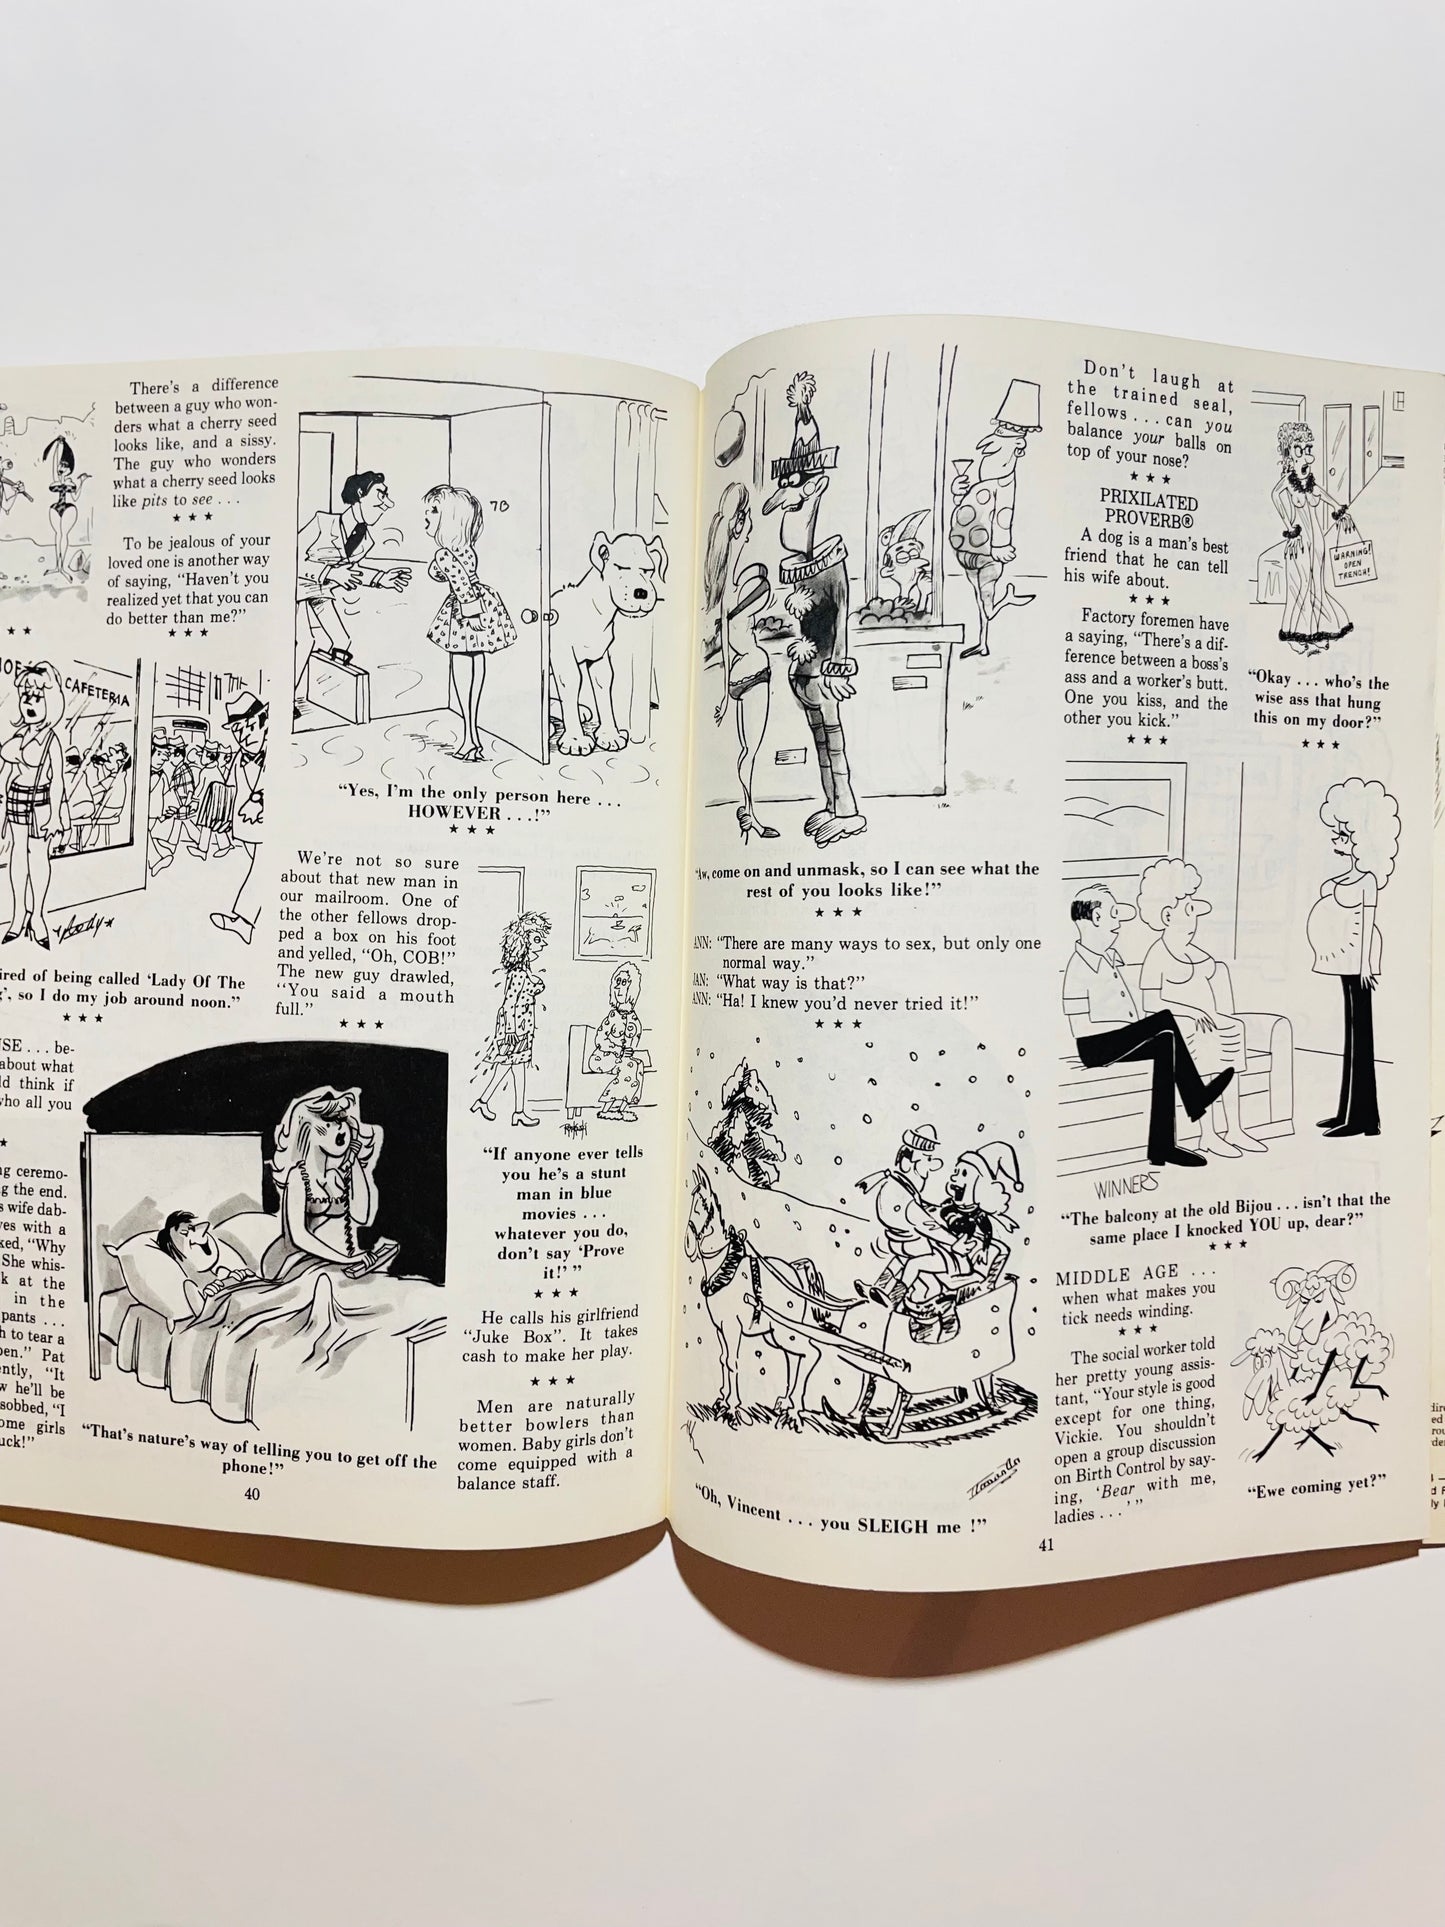 There's a difference
between a guy who won-
ders what a cherry seed
looks like, and a sissy.
The guy who wonders
what a cherry seed looks
like pits to see . . .
★ ★ ★
To be jealous of your
loved one is another way
of saying, “Haven't you
realized yet that you can
do better than me?”
★ ★ ★
★ ★
CAFETERIA
ired of being called ‘Lady Of The
’, so I do my job around noon.”
★ ★ ★
USE . . . be-
about what
ld think if
who all you
★
ng ceremo-
ng the end.
s wife dab-
yes with a
ked, “Why
She whis-
k at the
in the
pants . . .
h to tear a
pen.” Pat
ently, “It
w he'll be
sobbed, “I
ome girls
uck!”
7B
“Yes, I'm the only person here . . .
HOWEVER . . .!”
★ ★ ★
We're not so sure
about that new man in
our mailroom. One of
the other fellows drop-
ped a box on his foot
and yelled, “Oh, COB!”
The new guy drawled,
“You said a mouth
full.”
★ ★ ★
“That's nature's way of telling you to get off the
phone!”
3
“If anyone ever tells
you he's a stunt
man in blue
movies . . .
whatever you do,
don't say ‘Prove
it!’ ”
★ ★ ★
He calls his girlfriend
“Juke Box”. It takes
cash to make her play.
★ ★ ★
Men are naturally
better bowlers than
women. Baby girls don't
come equipped with a
balance staff.
40
“Aw, come on and unmask, so I can see what the
rest of you looks like!”
★ ★ ★
ANN: “There are many ways to sex, but only one
normal way.”
“What way is that?”
ANN: “Ha! I knew you'd never tried it!”
★ ★ ★
“Oh, Vincent . . . you SLEIGH me !”
Don't laugh at
the trained seal,
fellows . . . can you
balance your balls on
top of your nose?
★ ★ ★
PRIXILATED
PROVERB®
A dog is a man's best
friend that he can tell
his wife about.
★ ★ ★
Factory foremen have
a saying, “There's a dif-
ference between a boss's
ass and a worker's butt.
One you kiss, and the
other you kick.”
★ ★ ★
WARNING!
OPEN
TRENCH!
“Okay . . . who's the
wise ass that hung
this on my door?”
★ ★ ★
WINNERS
“The balcony at the old Bijou . . . isn't that the
same place I knocked YOU up, dear?”
★ ★ ★
MIDDLE AGE . . .
when what makes you
tick needs winding.
★ ★ ★
The social worker told
her pretty young assis-
tant, “Your style is good
except for one thing,
Vickie. You shouldn't
open a group discussion
on Birth Control by say-
ing, ‘Bear with me,
ladies . . . ’ ”
“Ewe coming yet?”
41